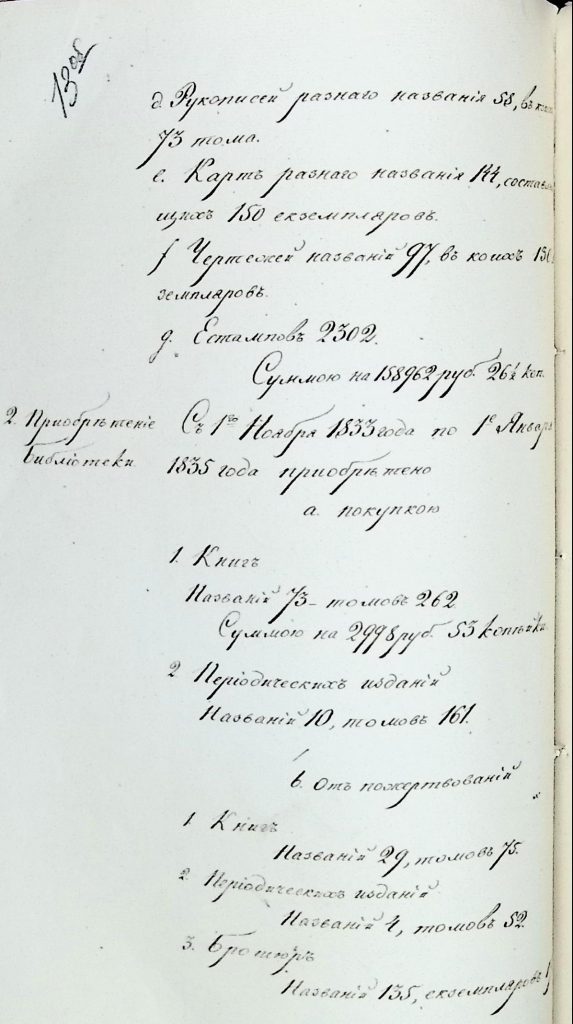 13 об
d. Рукописей разнаго названія 58, въ
73 тома.
e. Картъ разнаго названія 144, составля
ющихъ 150 екземпляровъ.
f Чертежей названій 97, въ коихъ
земпляровъ.
g. Естамповъ 2302.
Суммою на 158962 руб. 26½ коп.
2. Приобрѣтеніе
Библіотеки.
Съ 1го Ноября 1833 года по 1е Января
1835 года приобрѣтено
a. покупкою
1. Книгъ
Названій 73 - томовъ 262
Суммою на 2998 руб. 53 копѣйки
2 Періодическихъ изданій
Названій 10, томовъ 161.
b. Отъ пожертвованій
1 Книгъ
Названій 29, томовъ 75.
2. Періодическихъ изданій
Названій 4, томовъ 52.
3. Брошюръ
Названій 135, екземпляровъ